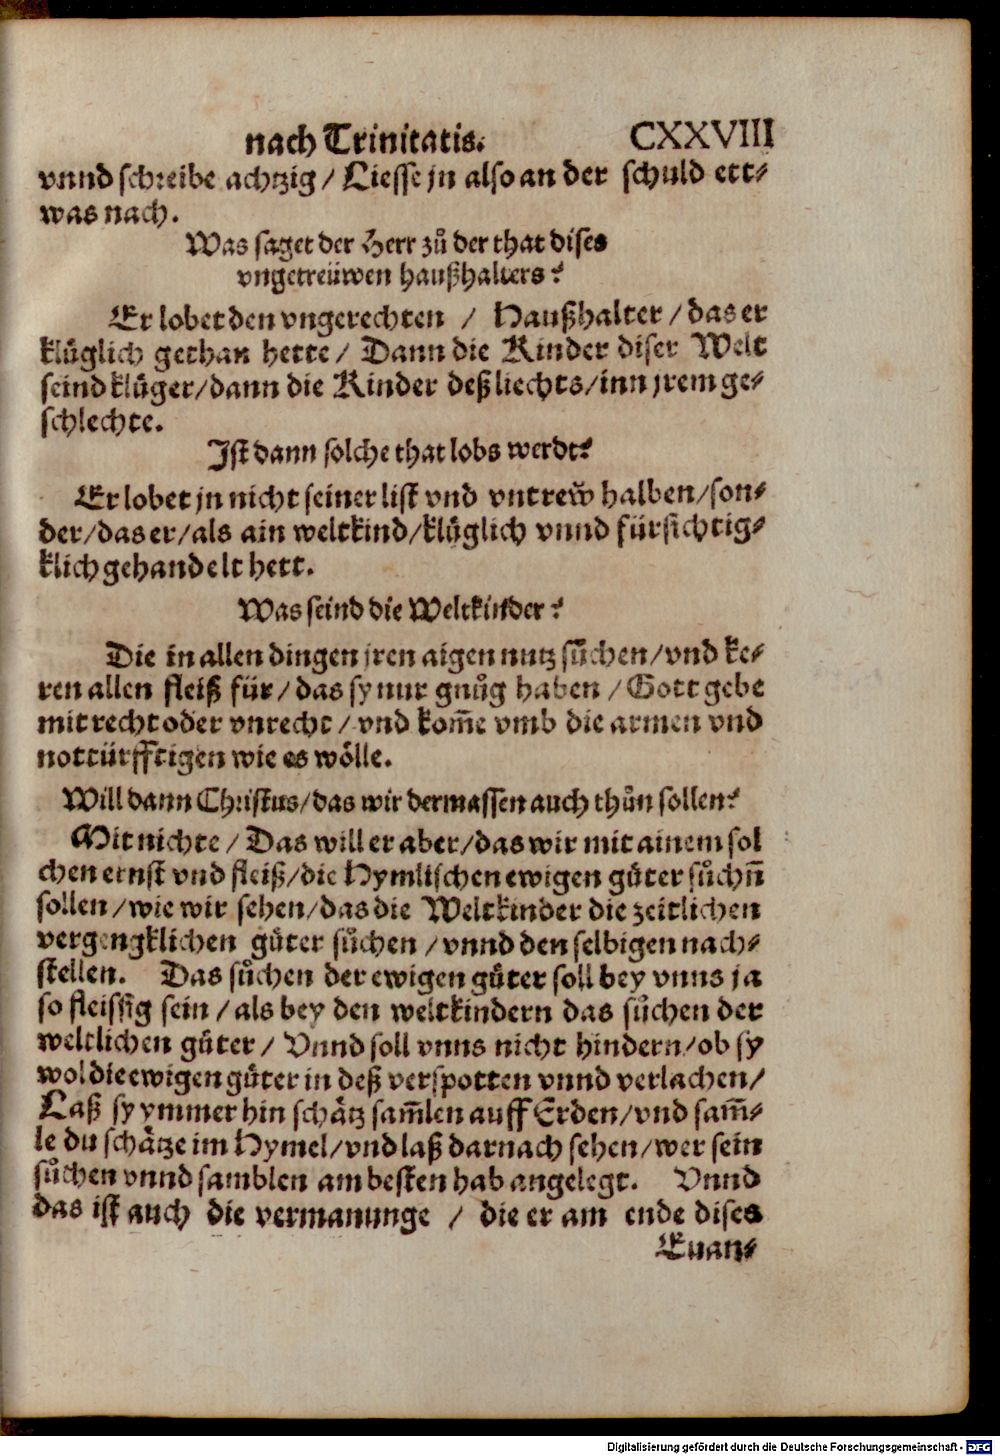 nach Trinitatis. CXXVIII
vnnd schreibe achtzig / Liesse jn also an der schuld ett⸗
was nach.
Was saget der Herr zů der that dises
vngetreüwen haußhalters?
Er lobet den vngerechten / Haußhalter / das er
klüglich gethan hette / Dann die Kinder diser Welt
seind klůger / dann die Kinder deß liechts / inn jrem ge⸗
schlechte.
Ist dann solche that lobs werdt?
Er lobet jn nicht seiner list vnd vntrew̃ halben / son⸗
der / das er / als ain weltkind / klůglich vnnd fürsichtig⸗
klich gehandelt hett.
Was seind die Weltkinder?
Die in allen dingen jren aigen nutz sůchen / vnd ke⸗
ren allen fleiß für / das sy nur gnůg haben / Gott gebe
mit recht oder vnrecht / vnd kom̃e vmb die armen vnd
nottürfftigen wie es wölle.
Will dann Christus / das wir dermassen auch thůn sollen?
Mit nichte / Das will er aber / das wir mit ainem sol
chen ernst vnd fleiß / die Hymlischen ewigen gůter sůchñ
sollen / wie wir sehen / das die Weltkinder die zeitlichen
vergengklichen gůter sůchen / vnnd den selbigen nach⸗
stellen. Das sůchen der ewigen gůter soll bey vnns ja
so fleissig sein / als bey den weltkindern das sůchen der
weltlichen gůter / Vnnd soll vnns nicht hindern / ob sy
wol die ewigen gůter in deß verspotten vnnd verlachen /
Laß sy ymmer hin schätz sam̃len auff Erden / vnd sam̃⸗
le du schätze im Hymel / vnd laß darnach sehen / wer sein
sůchen vnnd samblen am besten hab angelegt. Vnnd
das ist auch die vermanunge / die er am ende dises
Euan⸗
Digitalisierung gefördert durch die Deutsche Forschungsgemeinschaft - DFG